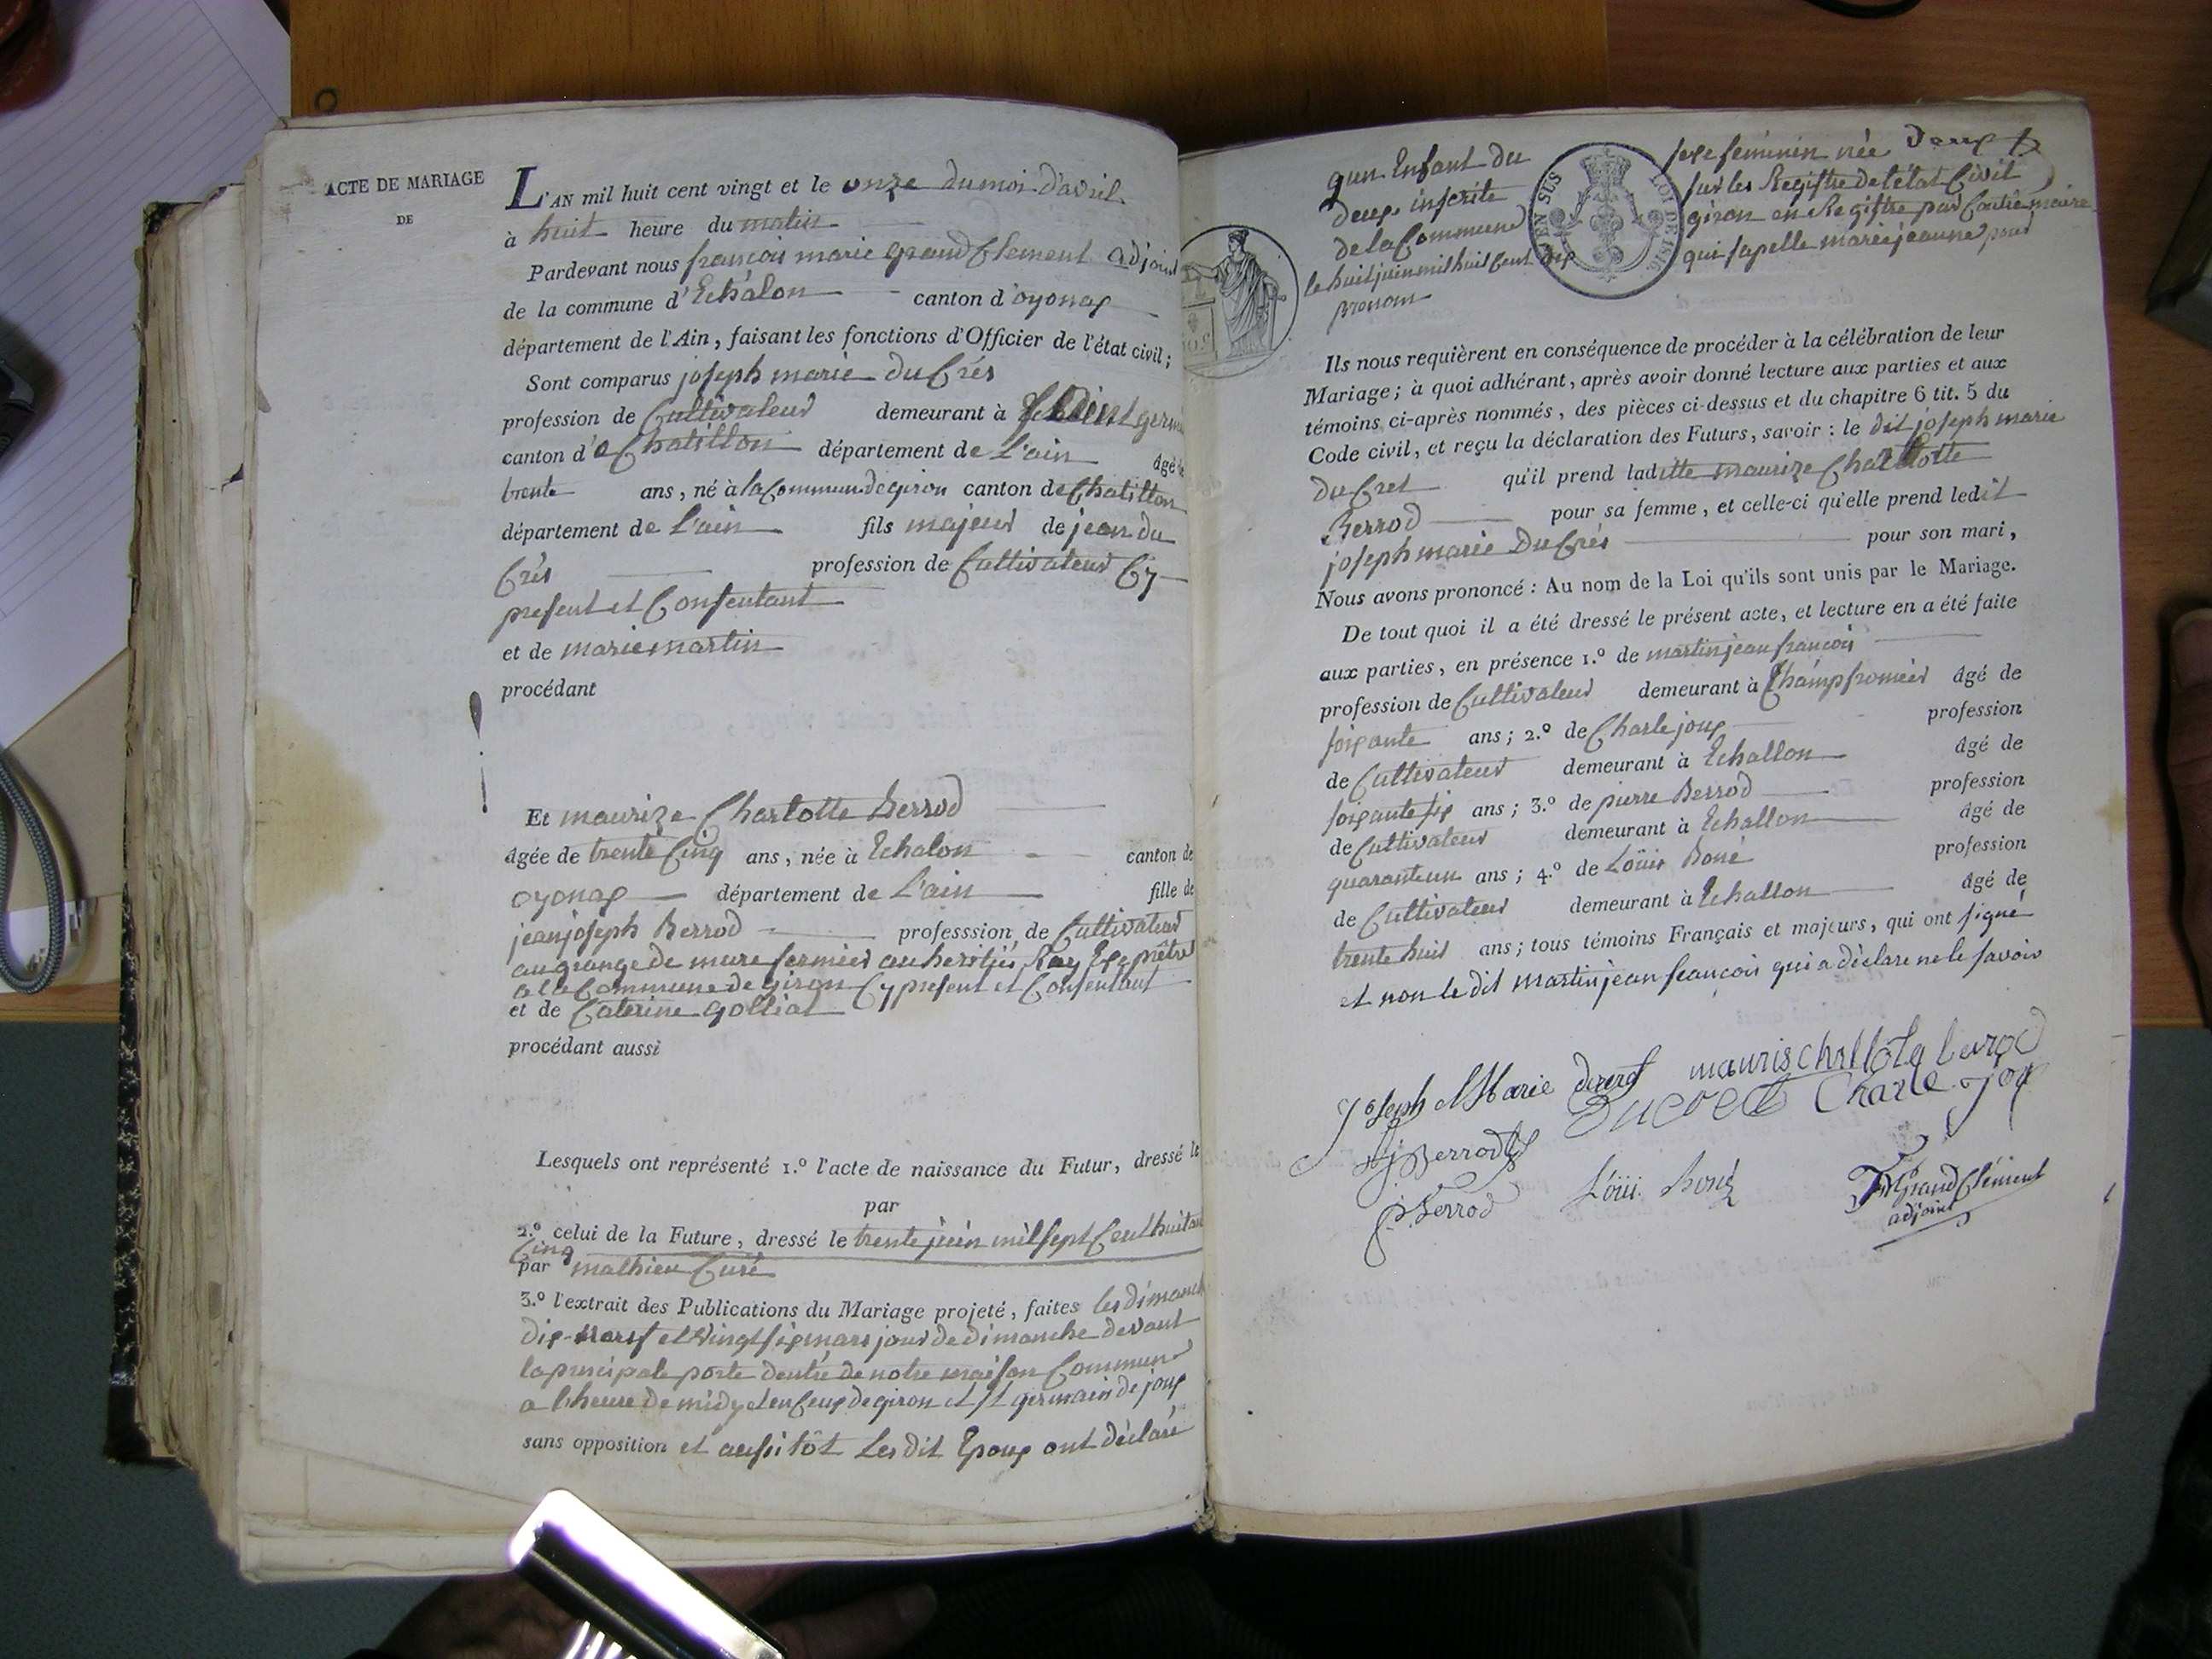 ACTE DE MARIAGE
DE
L'AN mil huit cent vingt et le onze du moi d'avril
à huit heure du matin
Pardevant nous francois marie grand Clement adjoint
de la commune d'Echalon canton d'oyonax
département de l'Ain, faisant les fonctions d'Officier de l'état civil;
Sont comparus joseph marie du Crés
profession de Cultivateur demeurant à germ
canton d'e Chatillon département de L'ain âgé de
trente ans, né à la Commune de giron canton de Chatillon
département de L'ain fils majeur de jean du
Crés profession de Cultivateur Cy
present et Consentant
et de marie martin
procédant
Et maurize Charlotte Berrod
âgée de trente Cinq ans, née à Echalon canton de
oyonax département de L'ain fille de
jean joseph Berrod professsion de Cultivateur
au grange de mure fermier au heritjés Ray Ex prêtre
a la Commune de giron Cy present et Consentant
et de Caterine golliat
procédant aussi
Lesquels ont représenté 1.º l'acte de naissance du Futur, dressé le
par
2.º celui de la Future, dressé le trente juin mil sept Cent huitan
Cinq
par mathieu Curé
3.º l'extrait des Publications du Mariage projeté, faites les dimanch
dix-neuf et vingt six mars jour de dimanche devant
la principale porte dentré de notre maison Commune
a l'heure de midy et en Ceux de giron et st germain de joux
sans opposition et aussitôt Les dit Epoux ont déclaré
qun Enfant du sexe féminin née deux
deux inscrite sur les Registre de l'état Civil
de la Commune giron en Registre par maire
le huit juin mil huit Cent dix qui sapelle marie jeanne pour
prenom
EN SUS
LOI DE 1816
Ils nous requièrent en conséquence de procéder à la célébration de leur
Mariage; à quoi adhérant, après avoir donné lecture aux parties et aux
témoins ci-après nommés, des pièces ci-dessus et du chapitre 6 tit. 5 du
Code civil, et reçu la déclaration des Futurs, savoir: le dit joseph marie
du Cret qu'il prend laditte maurize Charlotte
Berrod pour sa femme, et celle-ci qu'elle prend ledit
joseph marie Du Crés pour son mari,
Nous avons prononcé: Au nom de la Loi qu'ils sont unis par le Mariage.
De tout quoi il a été dressé le présent acte, et lecture en a été faite
aux parties, en présence 1.º de martin jean francois
profession de Cultivateur demeurant à Champfromier âgé de
soixante ans; 2.º de Charle joux profession
de Cultivateur demeurant à Echallon âgé de
soixante six ans; 3.º de pierre Berrod profession
de Cultivateur demeurant à Echallon âgé de
quarante un ans; 4.º de Loüis Boné profession
de Cultivateur demeurant à Echallon âgé de
trente huit ans; tous témoins Français et majeurs, qui ont signé
et non le dit martin jean francois qui a déclare ne le savoir
Joseph Marie ducret mauris challote berod
Ducret Charle joux
jj Berrod
P. Berrod Loüi Boné FM Grand Clément
adjoint